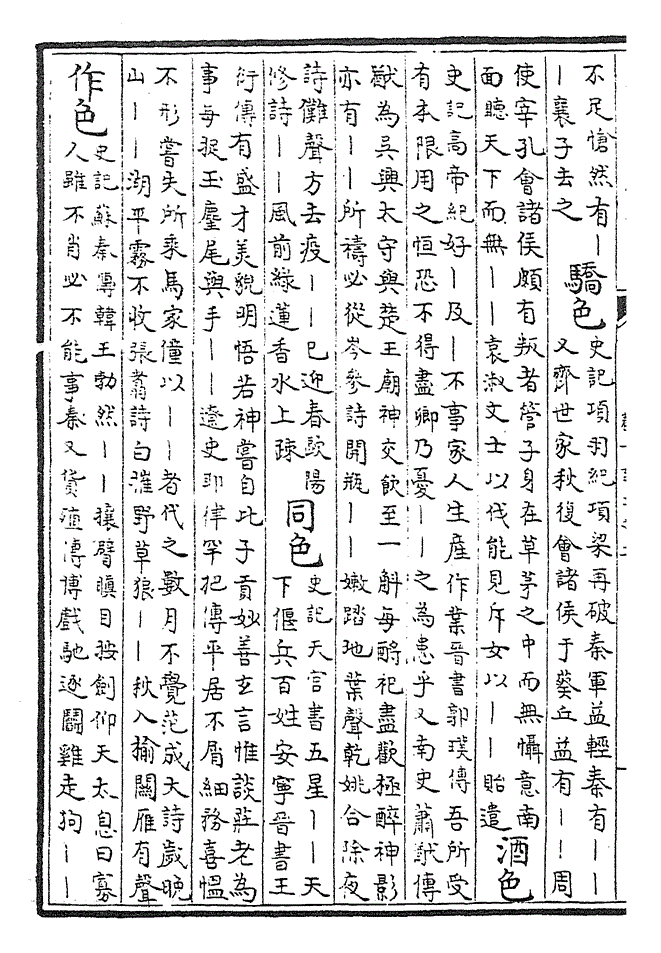 不足愴然有｜
｜襄子去之
驕色
史記項羽紀項梁再破秦軍益輕秦有｜｜
又齊世家秋復會諸侯于葵丘益有｜｜周
使宰孔會諸侯頗有叛者管子身在草茅之中而無懾意南
面聽天下而無｜｜袁淑文士以伐能見斥女以｜｜貽遣
酒色
史記高帝紀好｜及｜不事家人生産作業晉書郭璞傳吾所受
有本限用之恒恐不得盡卿乃憂｜｜之為患乎又南史蕭猷傳
猷為吳興太守與楚王廟神交飲至一斛每酹祀盡歡極醉神影
亦有｜｜所禱必從岑參詩開瓶｜｜嫩踏地葉聲乾姚合除夜
詩儺聲方去疫｜｜已迎春歐陽
修詩｜｜風前綠蓮香水上疎
同色
史記天官書五星｜｜天
下偃兵百姓安寧晉書王
衍傳有盛才美貌明悟若神嘗自比子貢妙善玄言惟談莊老為
事每捉玉麈尾與手｜｜遼史耶律罕把傳平居不屑細務喜慍
不形嘗失所乘馬家僮以｜｜者代之數月不覺范成大詩歲晚
山｜｜湖平霧不收張翥詩白漼野草狼｜｜秋入榆關雁有聲
作色
史記蘇秦傳韓王勃然｜｜攘臂瞋目按劍仰天太息曰寡
人雖不肖必不能事秦又貨殖傳博戲馳逐鬭雞走狗｜｜